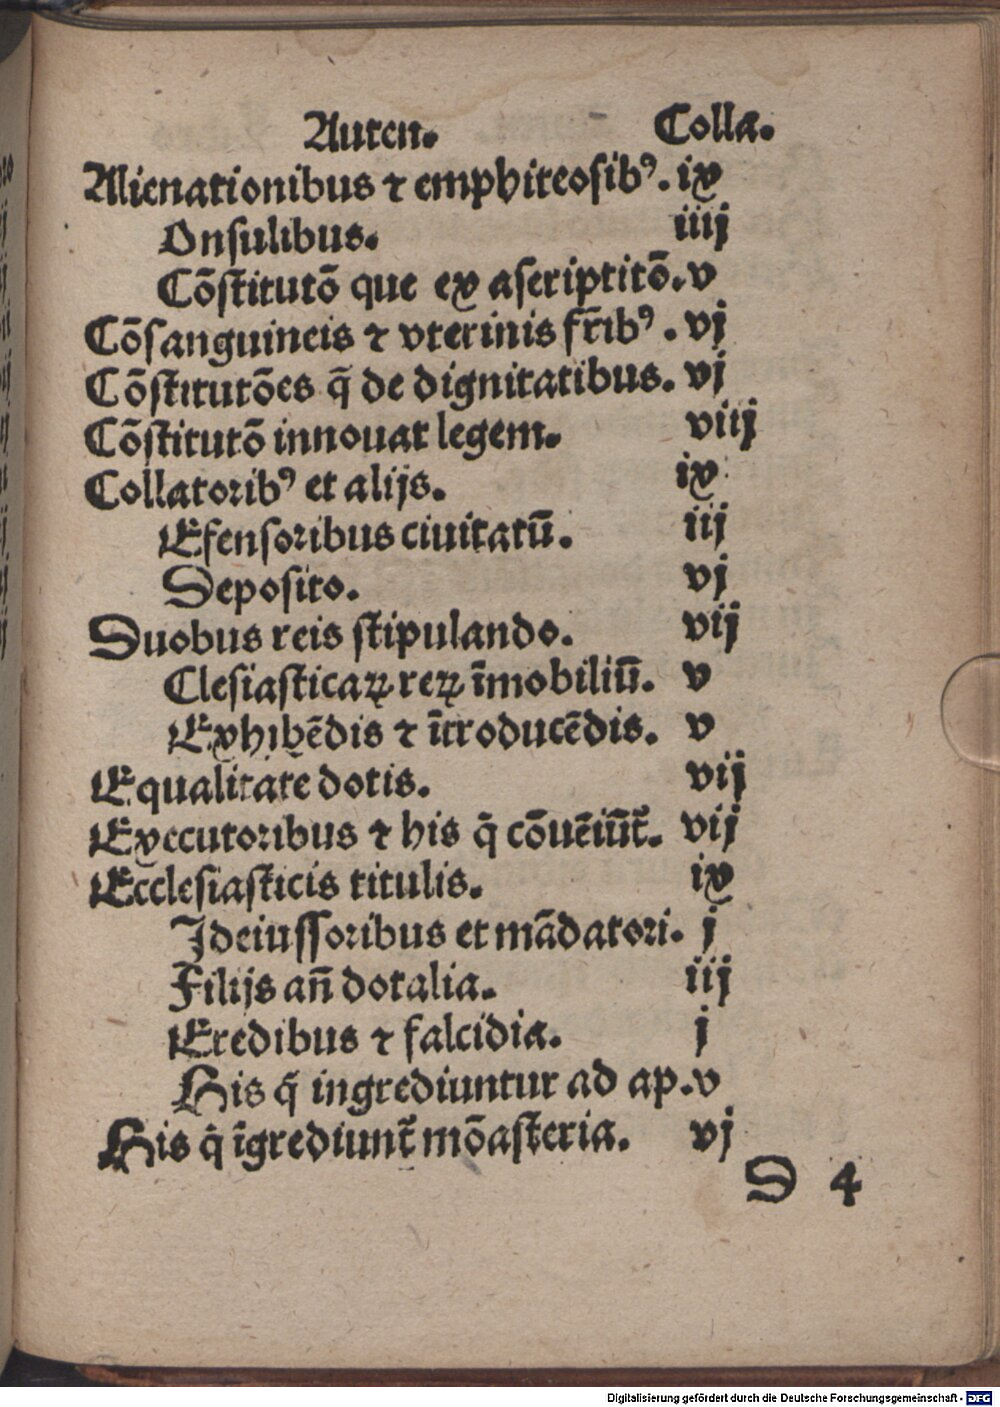 Auten. Colla.
Alienationibus ⁊ emphiteosibꝰ. ix
Onsulibus. iiij
Cōstitutō que ex ascriptitō. v
Cōsanguineis ⁊ vterinis fr̄ibꝰ. vj
Cōstitutōes q̄ de dignitatibus. vj
Cōstitutō innouat legem. viij
Collatoribꝰ et alijs. ix
Efensoribus ciuitatū. iij
Deposito. vj
Duobus reis stipulando. vij
Clesiasticaꝝ reꝝ īmobiliū. v
Exhibēdis ⁊ ītroducēdis. v
Equalitate dotis. vij
Executoribus ⁊ his q̄ cōuēiūt̄. vij
Ecclesiasticis titulis. ix
Ideiussoribus et mādatori. j
Filijs an̄ dotalia. iij
Eredibus ⁊ falcidia. j
His q̄ ingrediuntur ad ap. v
His q̄ īgrediunt̄ mōasteria. vj
D 4
Digitalisierung gefördert durch die Deutsche Forschungsgemeinschaft - DFG